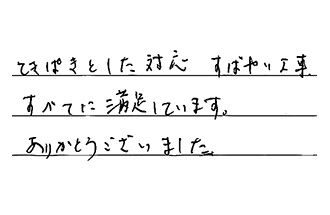 てきぱきとした対応 すばやい工事
すべてに満足しています。
ありがとうございました。